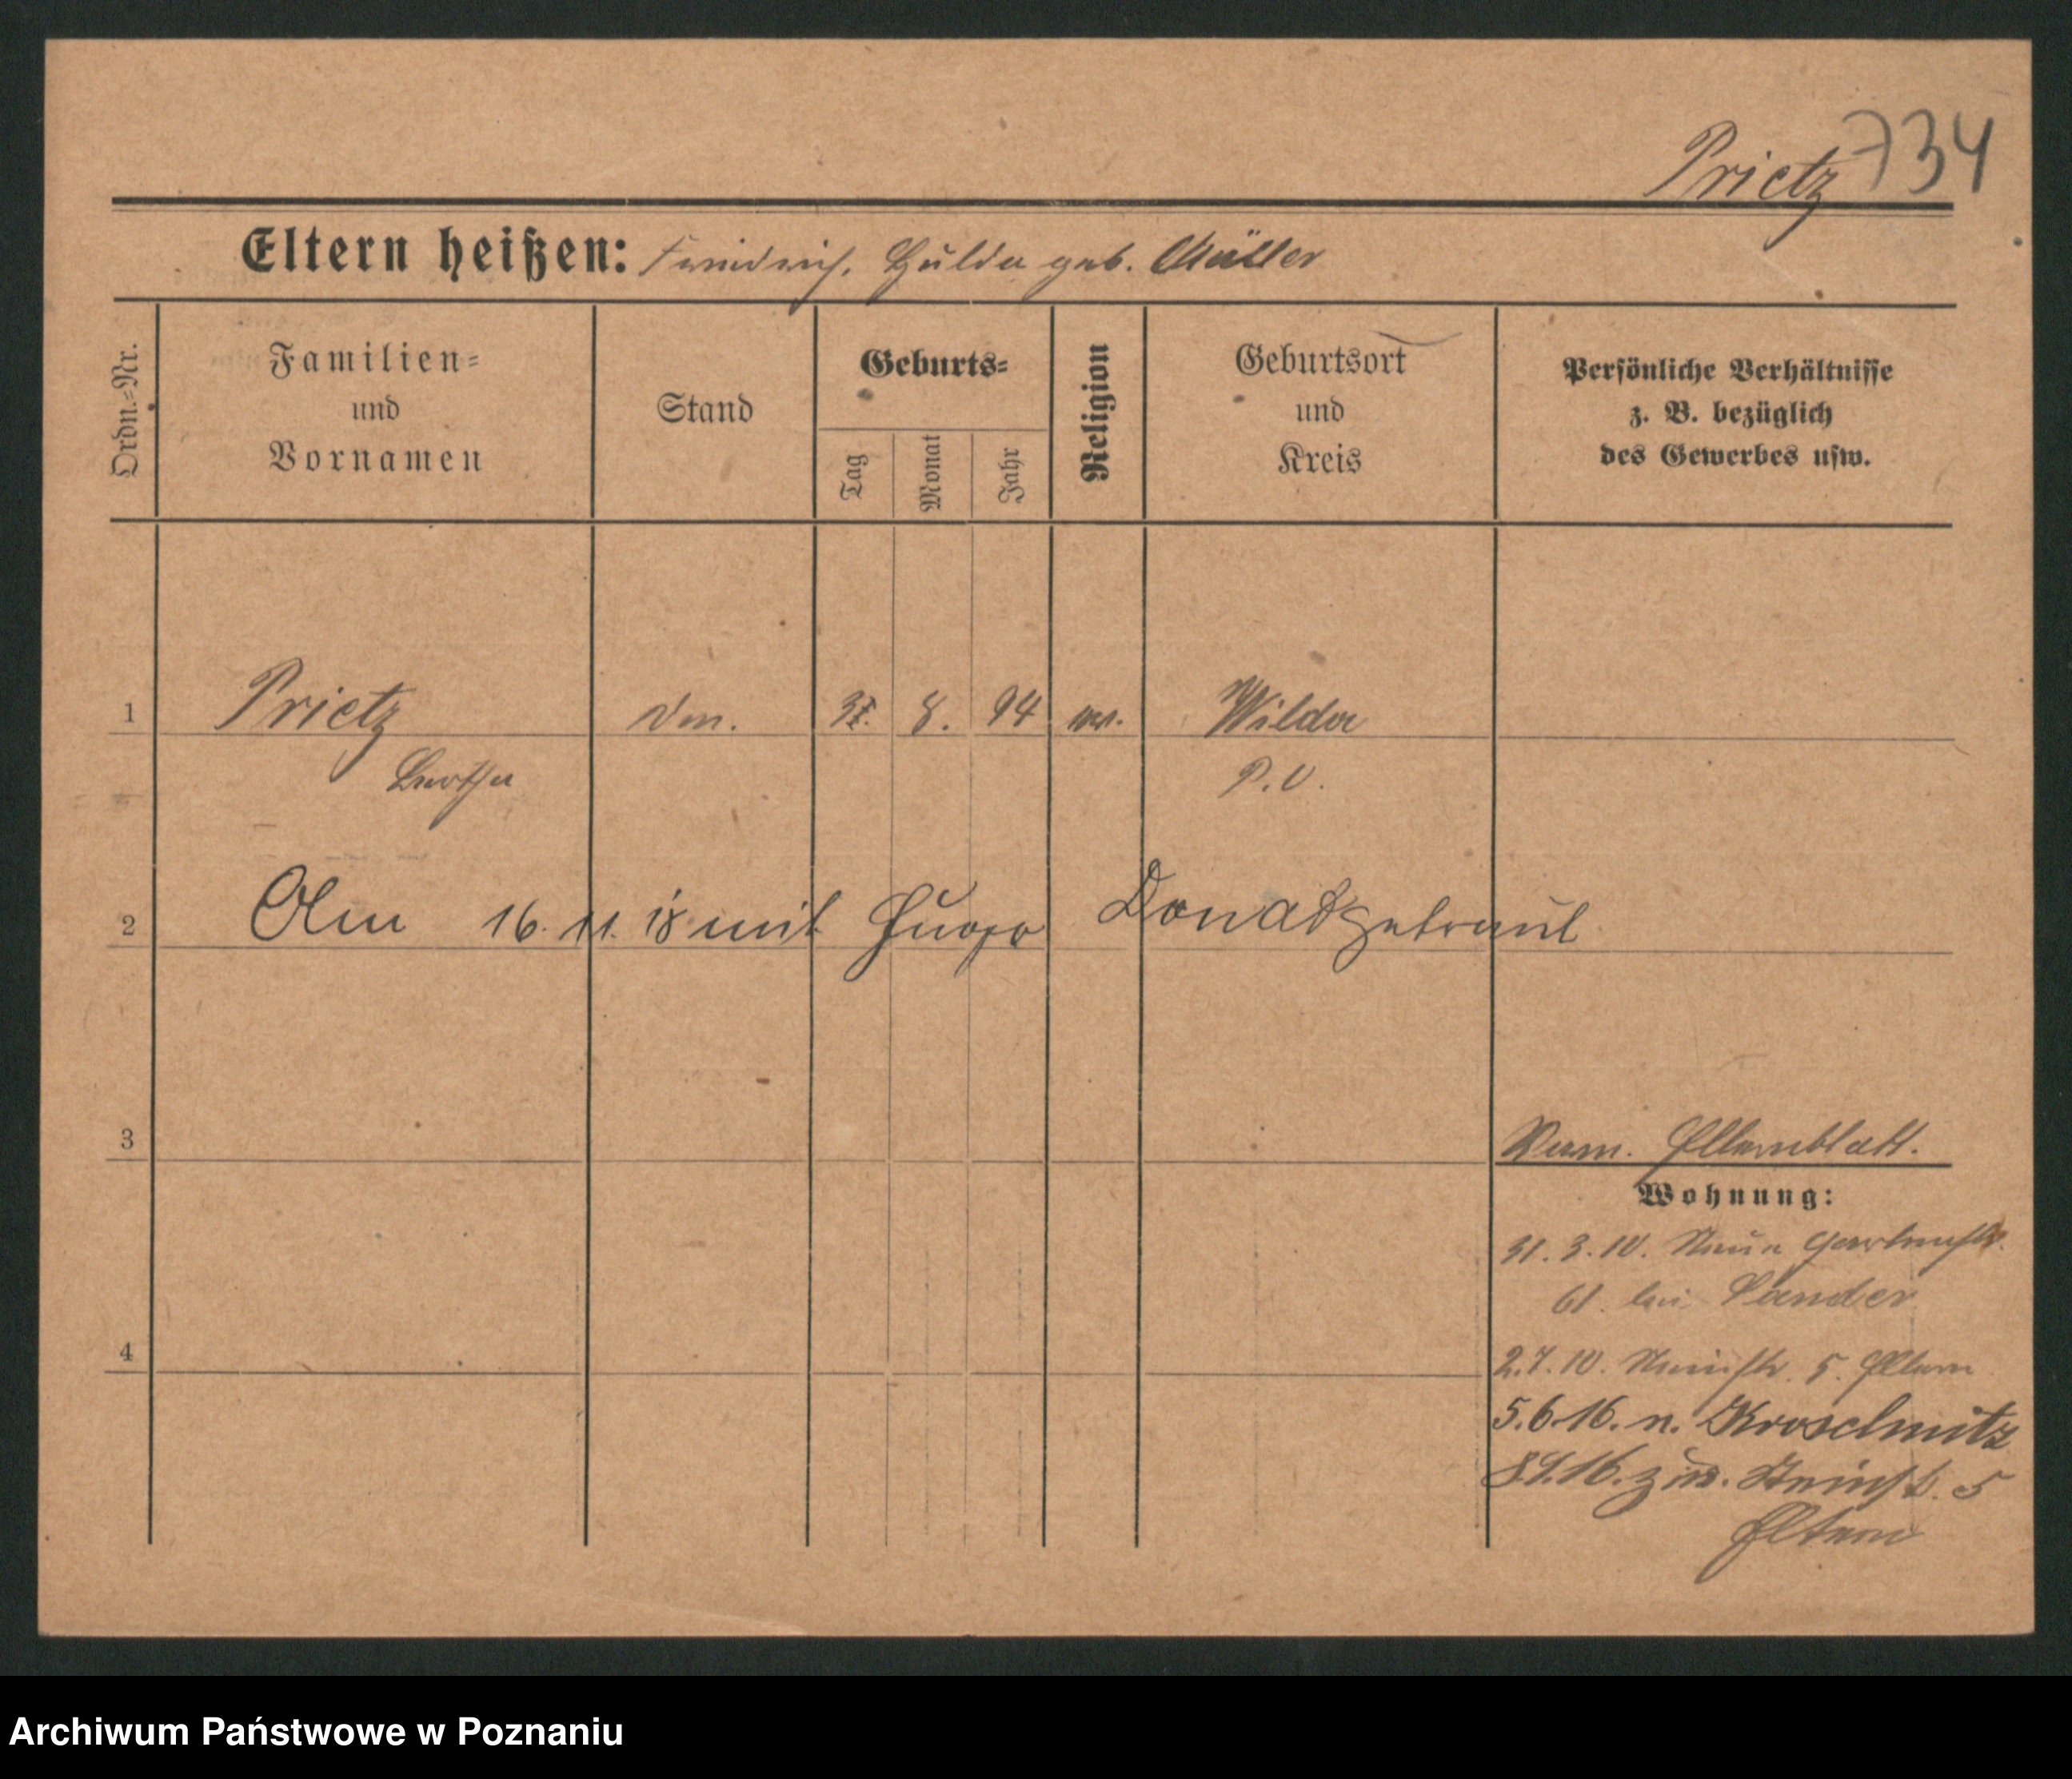 Prietz 734
Eltern heißen: Friedrich, Hulda geb. Müller
Ordn.-Nr.
Familien-
und
Vornamen
Stand
Geburts-
Tag
Monat
Jahr
Religion
Geburtsort
und
Kreis
Persönliche Verhältnisse
z. B. bezüglich
des Gewerbes usw.
1 Prietz 8. 94 Wilda
P. O.
2 Am 16. 11. 18 mit Hugo Donat getraut
3
Elternblatt.
Wohnung:
31. 3. 10. Neue Gartenstr.
61. bei Sander
4
2. 7. 10. 5. Eltern
5. 6. 16. n. Kroschnitz
16. 5
Eltern
Archiwum Państwowe w Poznaniu